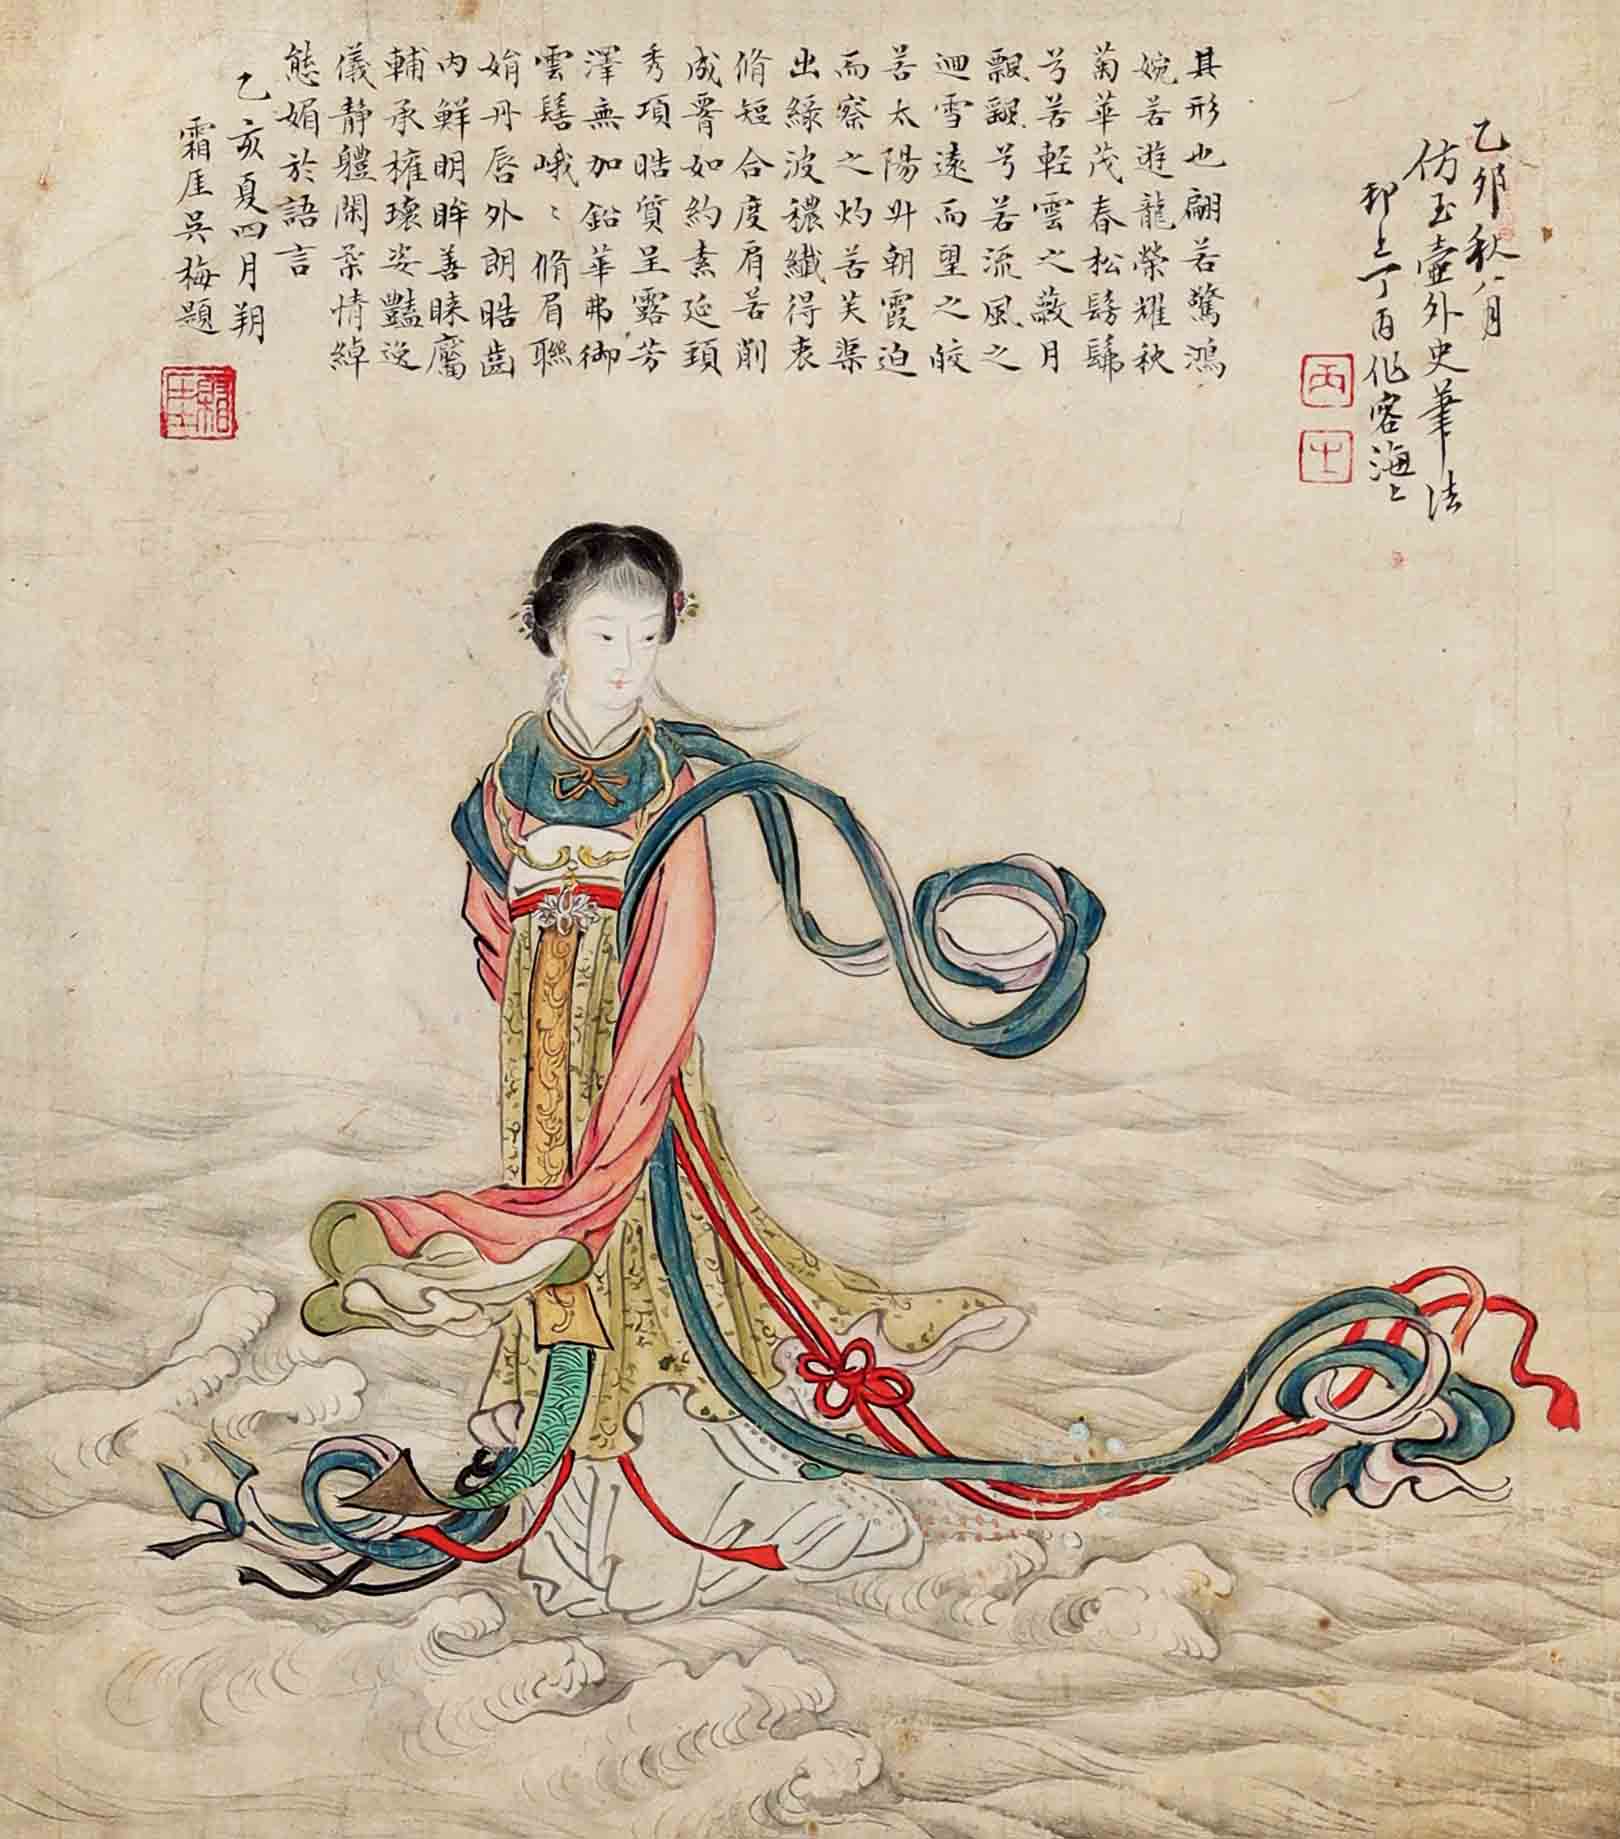 乙卯秋八月
仿玉壺外史筆法
邗上丁丙作客海上
丙
士
其形也翩若驚鴻
婉若遊龍榮耀秋
菊華茂春松髣髴
兮若輕雲之蔽月
飄颻兮若流風之
迴雪遠而望之皎
若太陽升朝霞迫
而察之灼若芙渠
出綠波穠纖得衷
脩短合度肩若削
成署如約素延頸
秀項皓質呈露芳
澤無加鉛華弗御
雲鬐峨〻脩眉聯
娟丹唇外朗皓齒
內鮮明眸善睞靨
輔承權瓌姿豔逸
儀靜軆閑柔情綽
態媚於語言
乙亥夏四月朔
霜厓吳梅題
霜厓